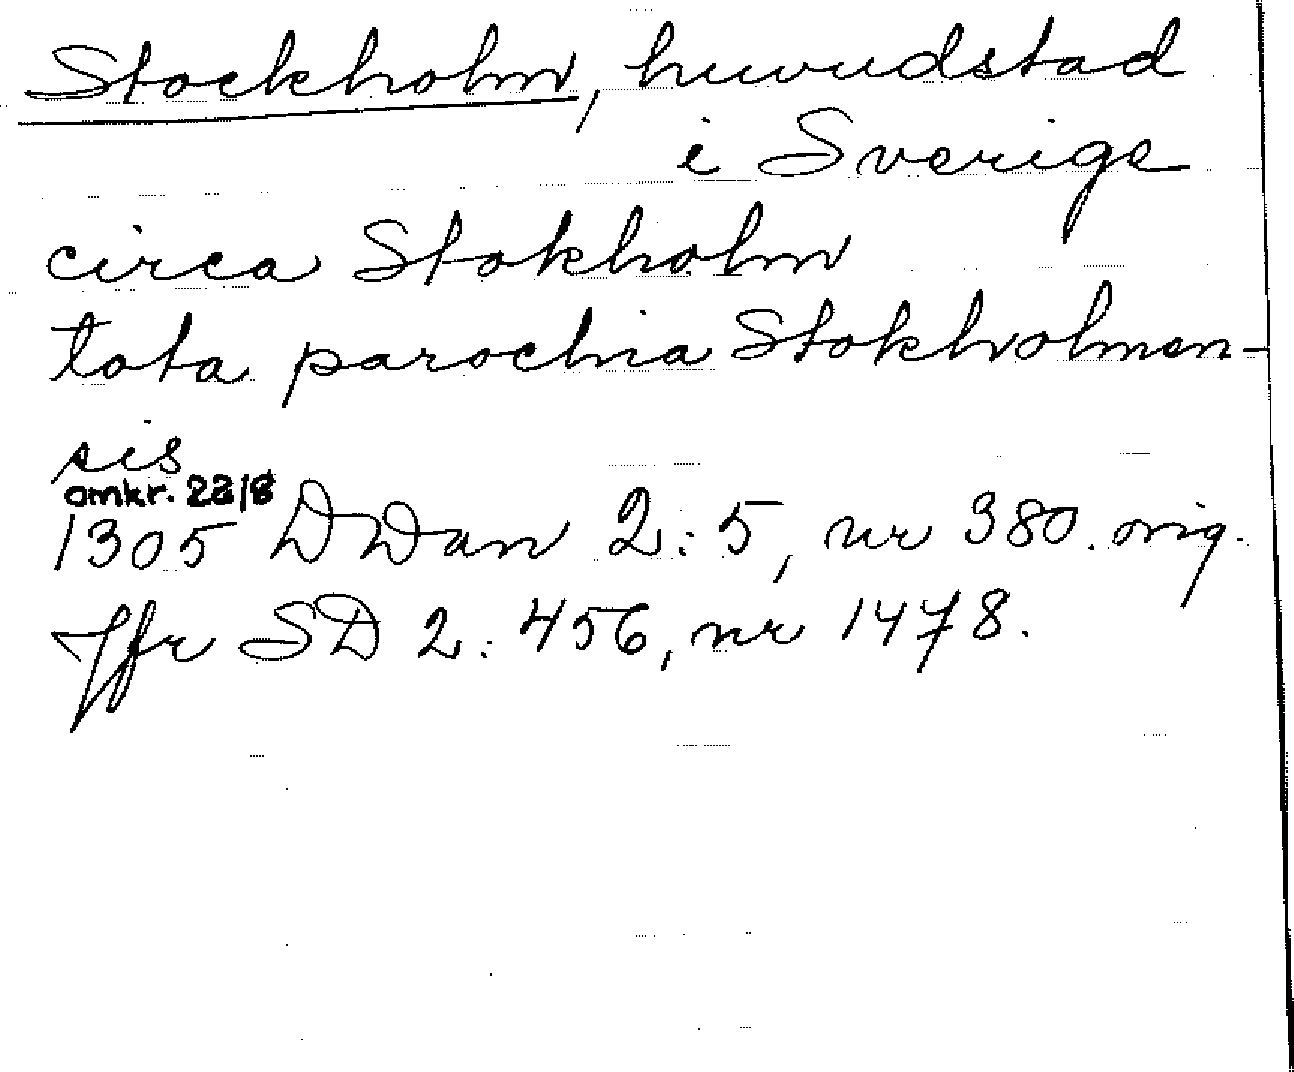 Stockholm, huvudstad
i Sverige
circa Stokholm
tota parochia Stokholmen-
sis
omkr. 22/8
1305 DDan 2:5, nr 380. orig.
Jfr SD 2:456, nr 1478.